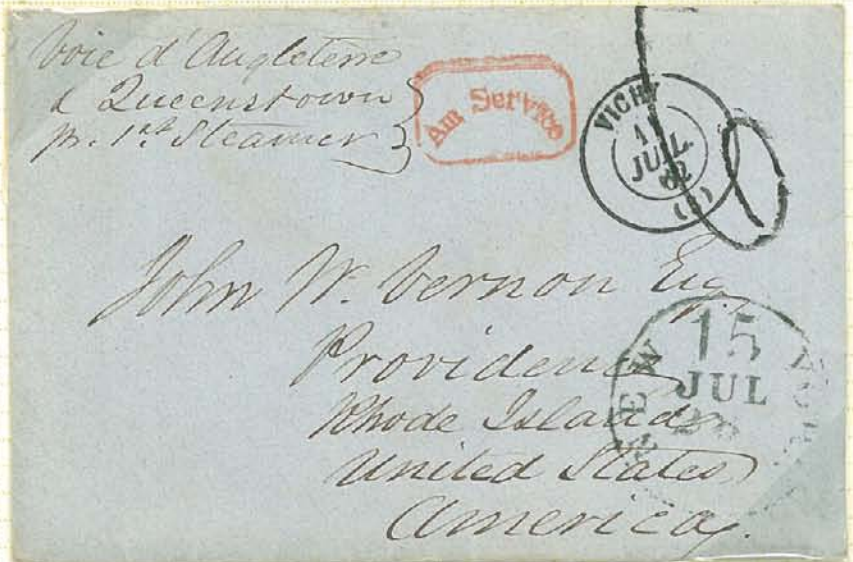 Voie d'Angleterre
& Queenstown
pr. 1st Steamer
Am Service
VICHY
11
JUIL.
62
John W. Vernon Esq
Providence
Rhode Island
United States
America.
NEW YORK
15
JUL